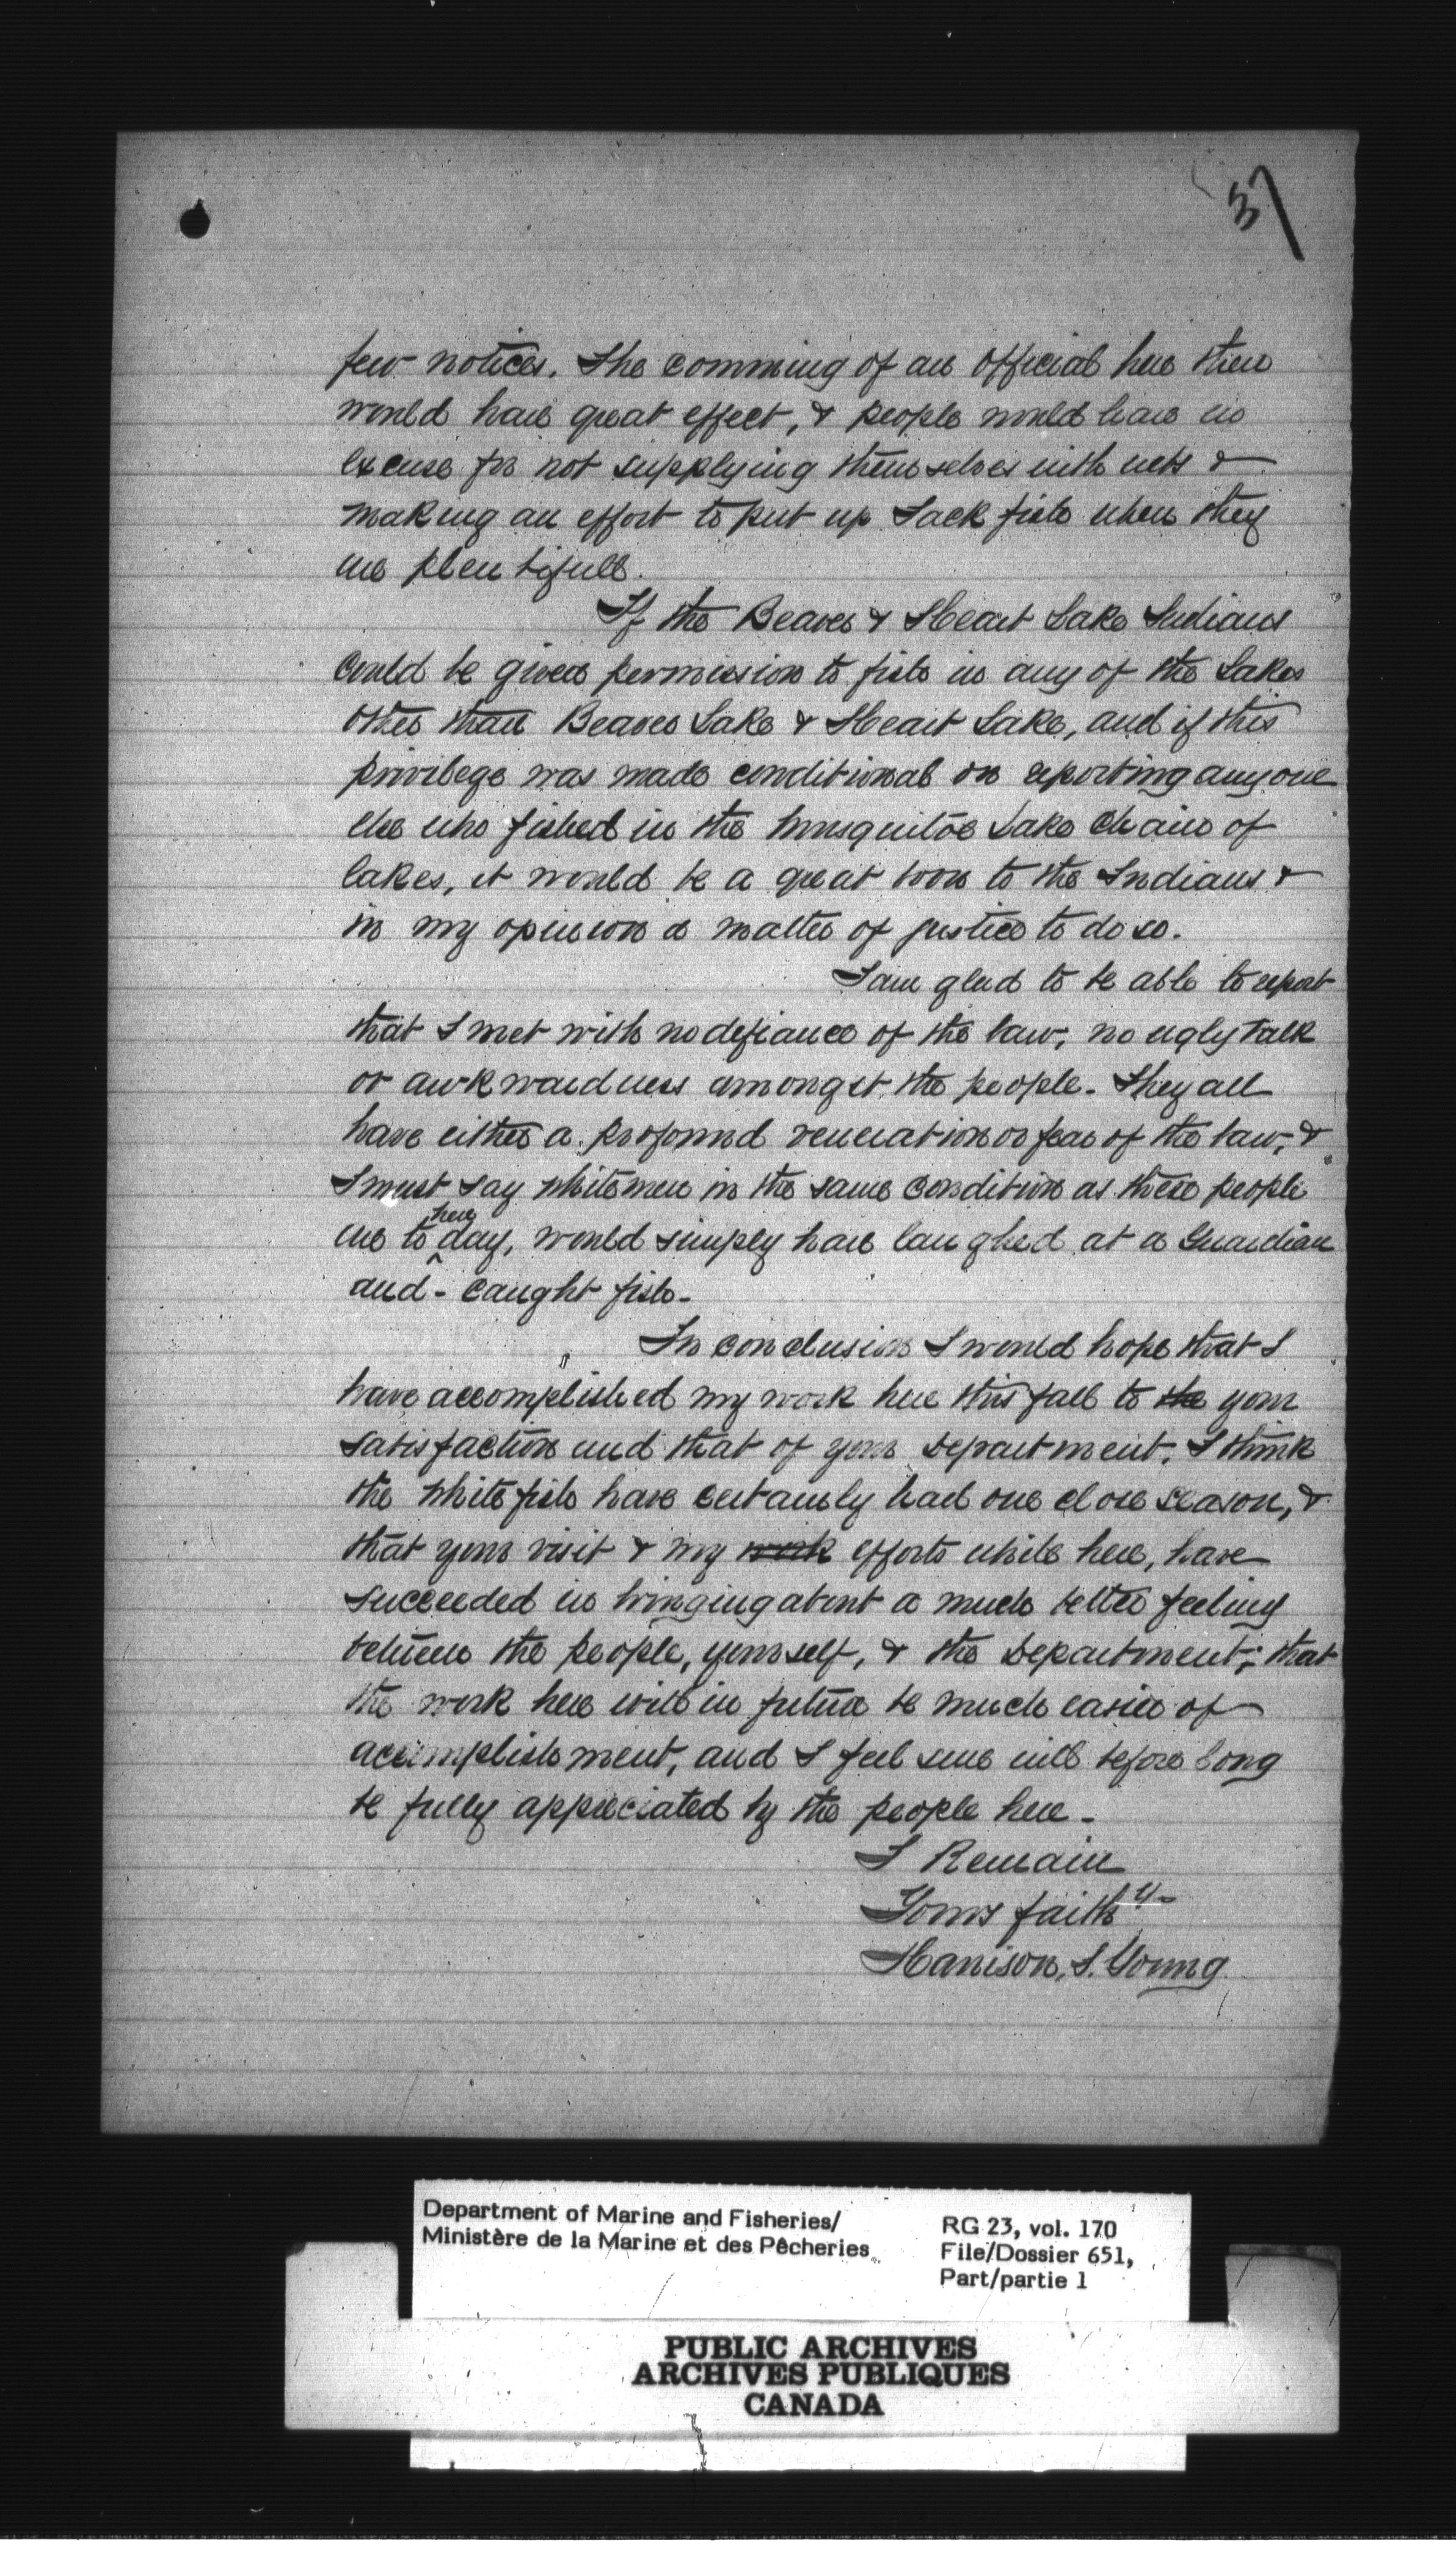 37
few notices. The comming of an official here then
would have great effect, & people would have no
excuse for not supplying themselves with nets &
making an effort to put up Jack fish when they
are plentifull.
If the Beaver & Heart Lake Indians
could be given permission to fish in any of the Lakes
other than Beaver Lake & Heart Lake, and if this
privilege was made conditional on reporting anyone
else who fished in the Musquitoe Lake Chain of
lakes, it would be a great boon to the Indians &
in my opinion a matter of justice to do so.
I am glad to be able to report
that I met with no defiance of the law, no ugly talk
or awkwardness amongst the people. They all
have either a profound veneration or fear of the law, &
I must say whitemen in the same condition as these people
are to here day, would simply have laughed at a Guardian
and - caught fish -
In conclusion I would hope that I
have accomplished my work here this fall to the your
satisfaction and that of your Department. I think
the whitefish have certainly had one close season, &
that your visit & my work efforts while here, have
succeeded in bringing about a much better feeling
between the people, yourself, & the Department; that
the work here will in future be much easier of
accomplishment, and I feel sure will before long
be fully appreciated by the people here -
I Remain
Yours faithly
Harrison, S. Young
Department of Marine and Fisheries/
Ministère de la Marine et des Pêcheries
RG 23, vol. 170
File/Dossier 651,
Part/partie 1
PUBLIC ARCHIVES
ARCHIVES PUBLIQUES
CANADA